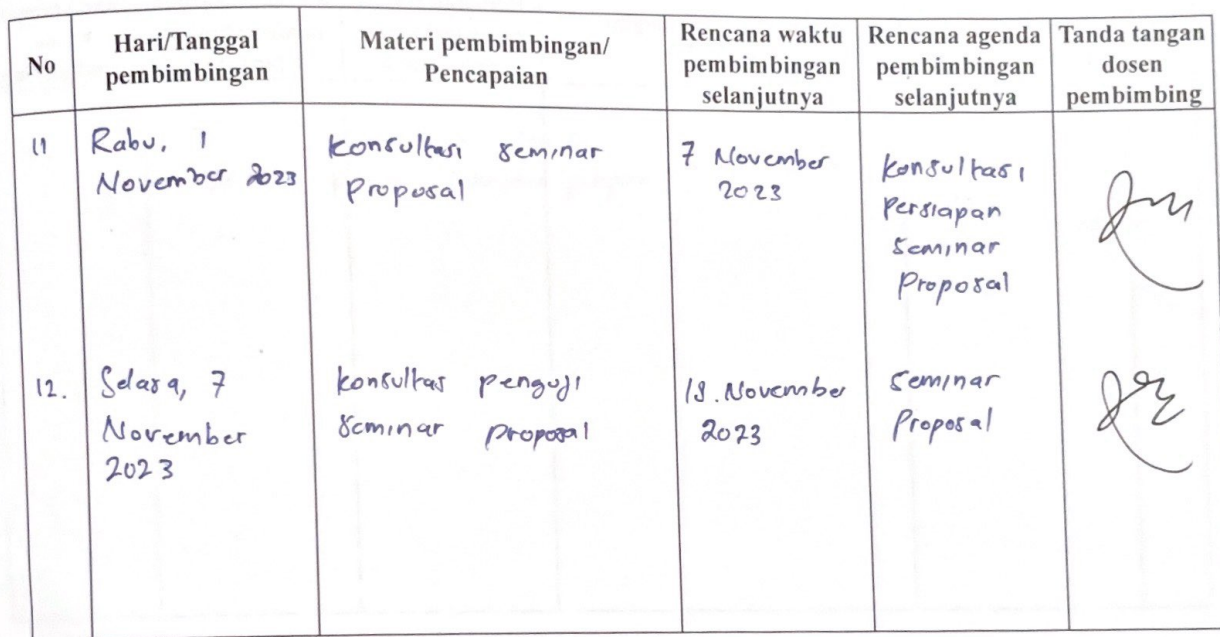 No
Hari/Tanggal
pembimbingan
Materi pembimbingan/
Pencapaian
Rencana waktu
pembimbingan
selanjutnya
Rencana agenda
pembimbingan
selanjutnya
Tanda tangan
dosen
pembimbing
11
Rabu, 1
November 2023
konsultasi seminar
Proposal
7 November
2023
konsultasi
Persiapan
Seminar
Proposal
12.
Selasa, 7
November
2023
konsultas penguji
Seminar proposal
November
2023
Seminar
Proposal